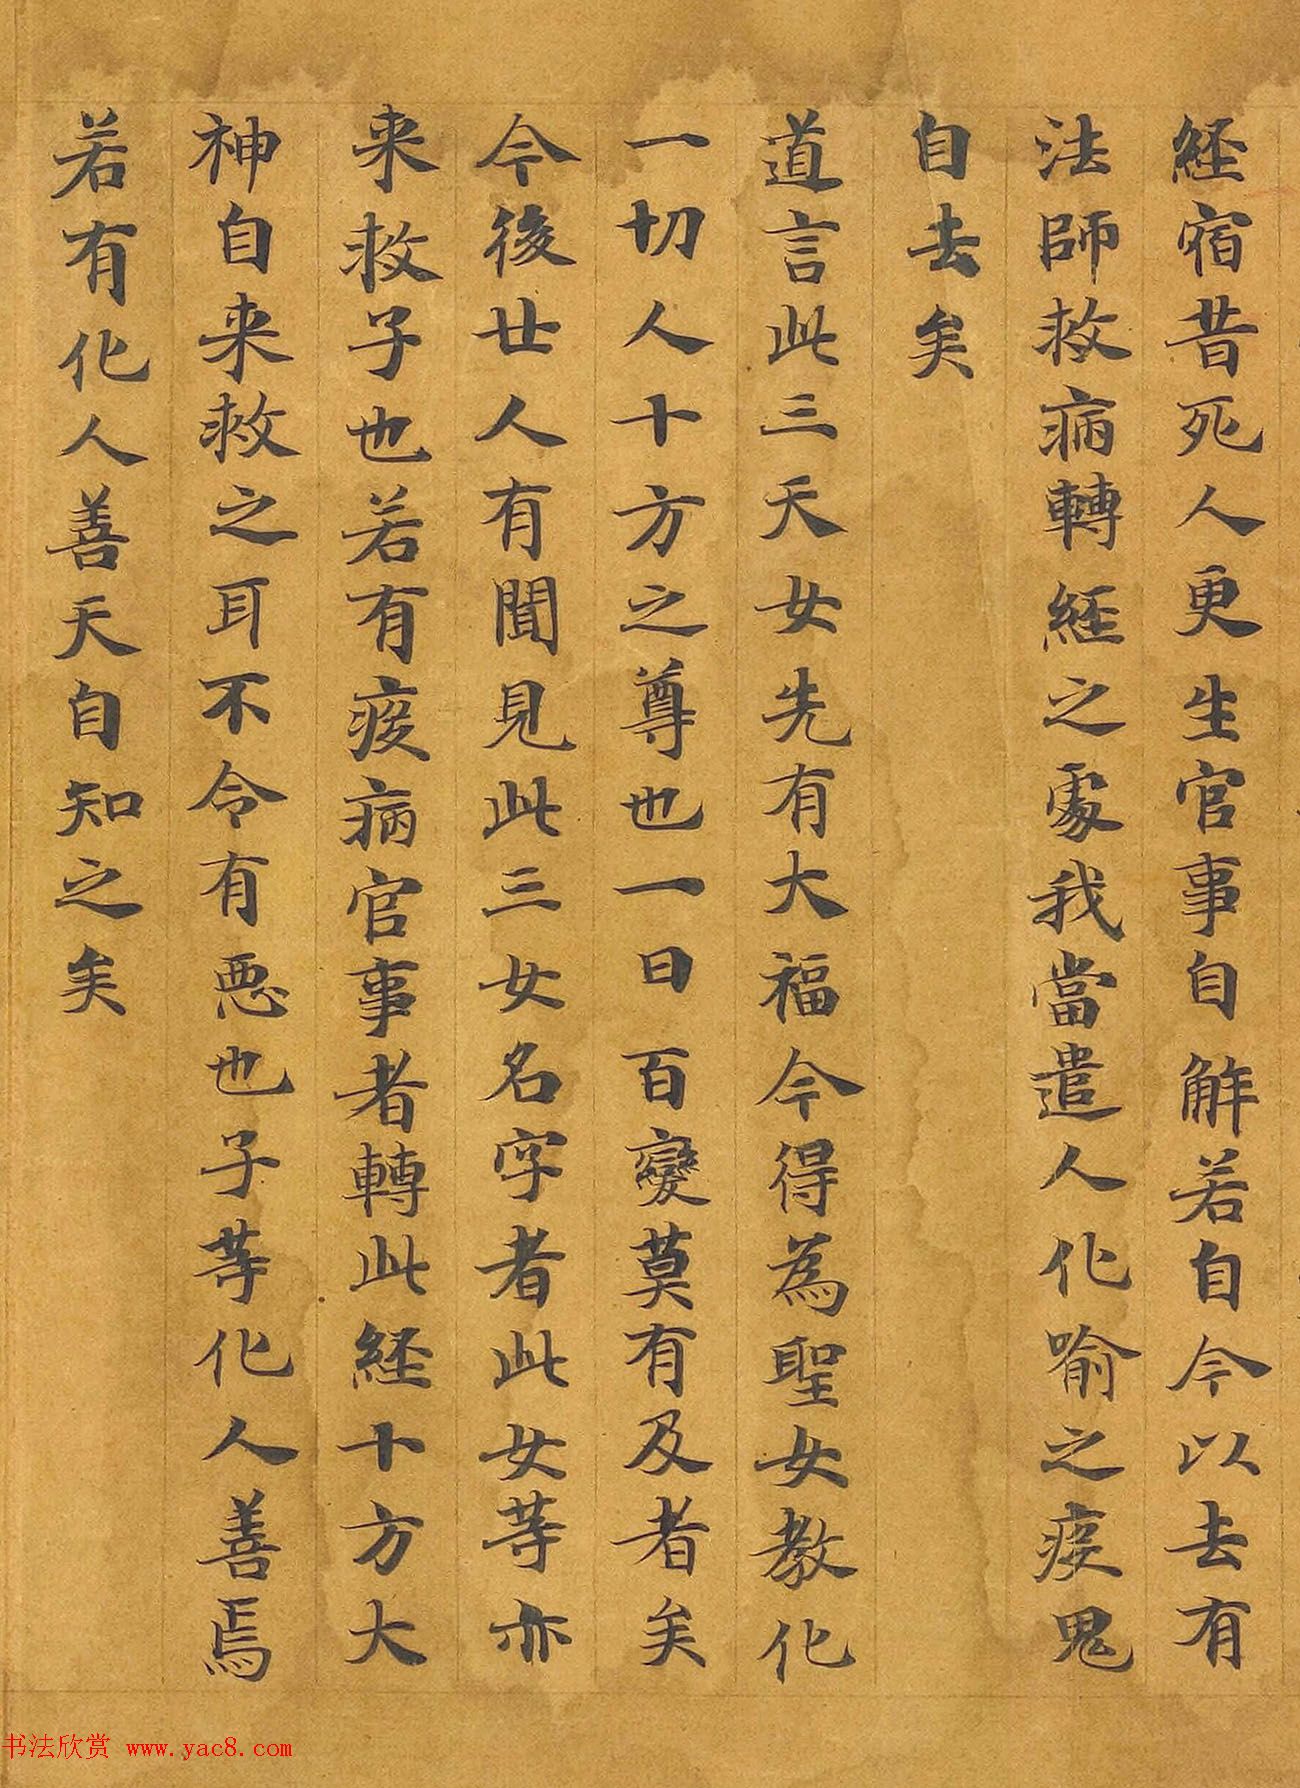 経宿昔死人更生官事自解若自今以去有
法師救病轉経之處我當遣人化喻之疾鬼
自去矣
道言此三天女先有大福今得為聖女教化
一切人十方之尊也一日百變莫有及者矣
今後廿人有聞見此三女名字者此女等亦
来救子也若有疾病官事者轉此経十方大
神自来救之耳不令有惡也子等化人善焉
若有化人善天自知之矣
书法欣赏 www.yac8.com